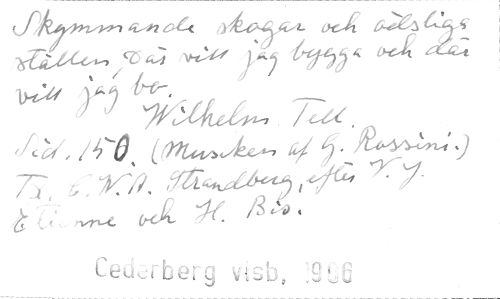 Skymmande skogar och ödsliga
ställen, Där vill jag bygga och där
vill jag bo.
Wilhelm Tell.
Sid. 150. (Musiken af G. Rossini.)
Tx. C.W.A. Strandberg, efter V. J.
Etienne och H. Bis.
Cederberg visb, 1906